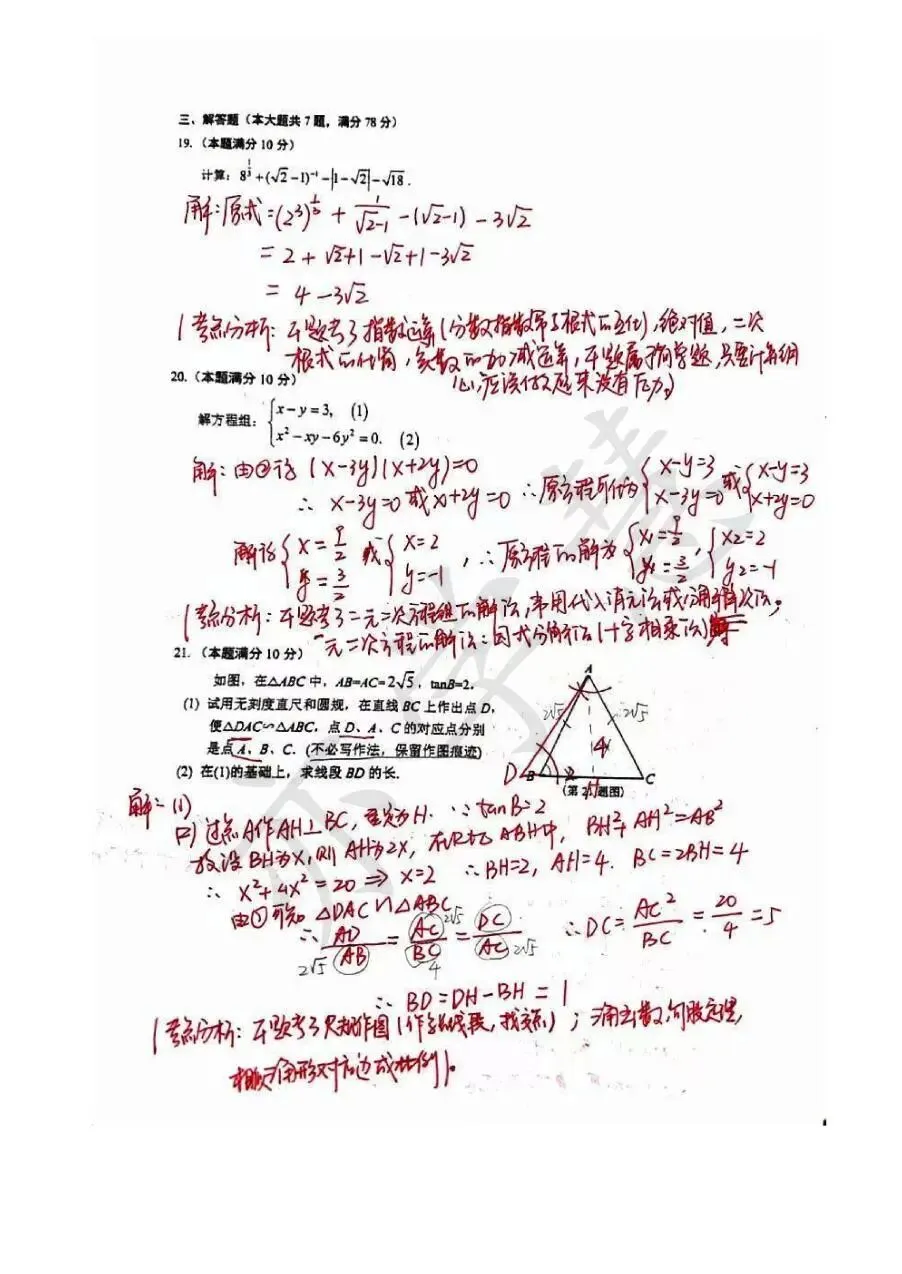 三、解答题（本大题共 7 题，满分 78 分）
19.（本题满分 10 分）
计算：8^{1/3}+(√2-1)^{-1}-|1-√2|-√18 .
解：原式=(2^3)^{1/3} + 1/(√2-1) -(√2-1) - 3√2
= 2 + √2+1-√2+1-3√2
= 4-3√2
考点分析：本题考了指数运算(分数指数幂与根式的互化)，绝对值，二次
根式的化简，实数的加减运算，本题属于简单题，只要计算细
心，应该做起来没有压力。
20.（本题满分 10 分）
解方程组：{x-y=3, (1)
x²-xy-6y²=0. (2)
解：由②得 (x-3y)(x+2y)=0
∴ x-3y=0 或 x+2y=0 ∴原方程可化为{x-y=3 x-3y=0 或{x-y=3 x+2y=0
解得{x=9/2 y=3/2 或{x=2 y=-1 ，∴原方程的解为{x₁=9/2 y₁=3/2 ，{x₂=2 y₂=-1
考点分析：本题考了二元二次方程组的解法，常用代入消元法或因式降次法。
一元二次方程的解法：因式分解法(十字相乘法)
21.（本题满分 10 分）
如图，在△ABC 中，AB=AC=2√5，tanB=2.
(1) 试用无刻度直尺和圆规，在直线 BC 上作出点 D，
使△DAC∽△ABC，点 D、A、C 的对应点分别
是点 A、B、C.（不必写作法，保留作图痕迹）
(2) 在(1)的基础上，求线段 BD 的长.
A
2√5
2√5
4
D
B
2
H
C
(第 21 题图)
解：(1)
(2) 过点A作AH⊥BC，垂足为H. ∵tanB=2
故设BH为x，则AH为2x，在Rt△ABH中， BH²+AH²=AB²
∴ x²+4x²=20 ⇒ x=2 ∴BH=2，AH=4. BC=2BH=4
由①可知 △DAC∽△ABC
∴ AD/AB = AC/BC = DC/AC ∴DC= AC²/BC = 20/4 =5
2√5
2√5
4
2√5
∴ BD=DH-BH=1
考点分析：本题考了尺规作图(作等线段，找交点)；三角函数，勾股定理，
相似三角形对应边成比例。